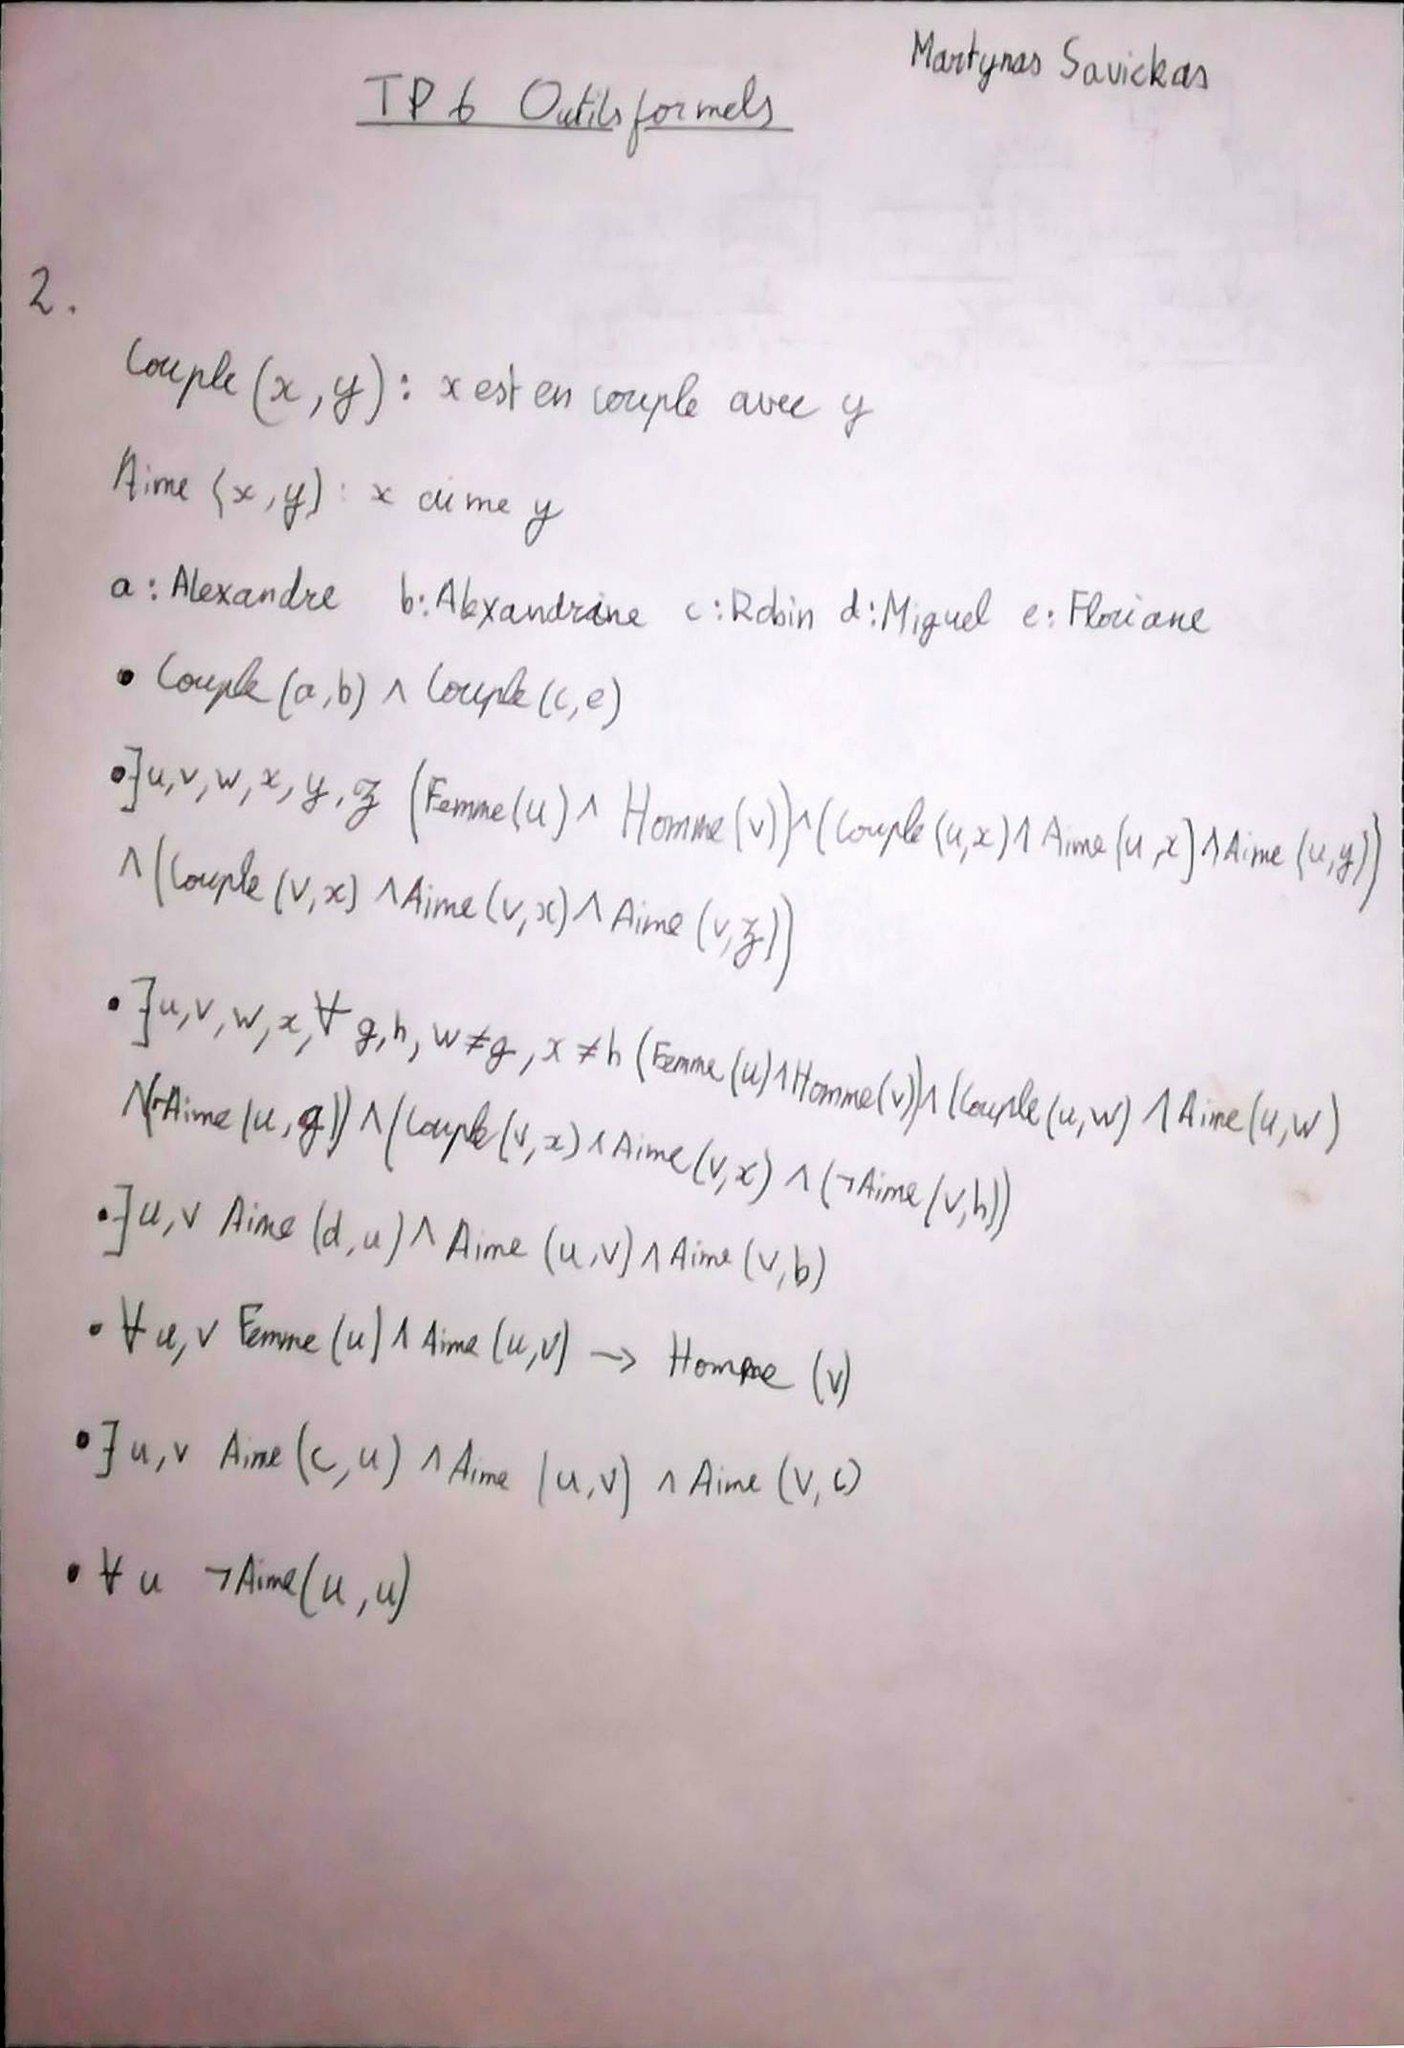 Martynas Savickas
TP 6 Outils formels
2.
Couple (x, y) : x est en couple avec y
Aime (x, y) : x aime y
a : Alexandre b : Alexandrine c : Robin d : Miguel e : Floriane
• Couple (a, b) ∧ Couple (c, e)
• ∃ u, v, w, x, y, z (Femme (u) ∧ Homme (v)) ∧ (Couple (u, x) ∧ Aime (u, x) ∧ Aime (u, y))
∧ (Couple (v, x) ∧ Aime (v, x) ∧ Aime (v, z))
• ∃ u, v, w, x, ∀ g, h, w ≠ g, x ≠ h (Femme (u) ∧ Homme (v)) ∧ (Couple (u, w) ∧ Aime (u, w)
∧ (¬Aime (u, g)) ∧ (Couple (v, x) ∧ Aime (v, x) ∧ (¬Aime (v, h))
• ∃ u, v Aime (d, u) ∧ Aime (u, v) ∧ Aime (v, b)
• ∀ u, v Femme (u) ∧ Aime (u, v) → Homme (v)
• ∃ u, v Aime (c, u) ∧ Aime (u, v) ∧ Aime (v, c)
• ∀ u ¬Aime (u, u)